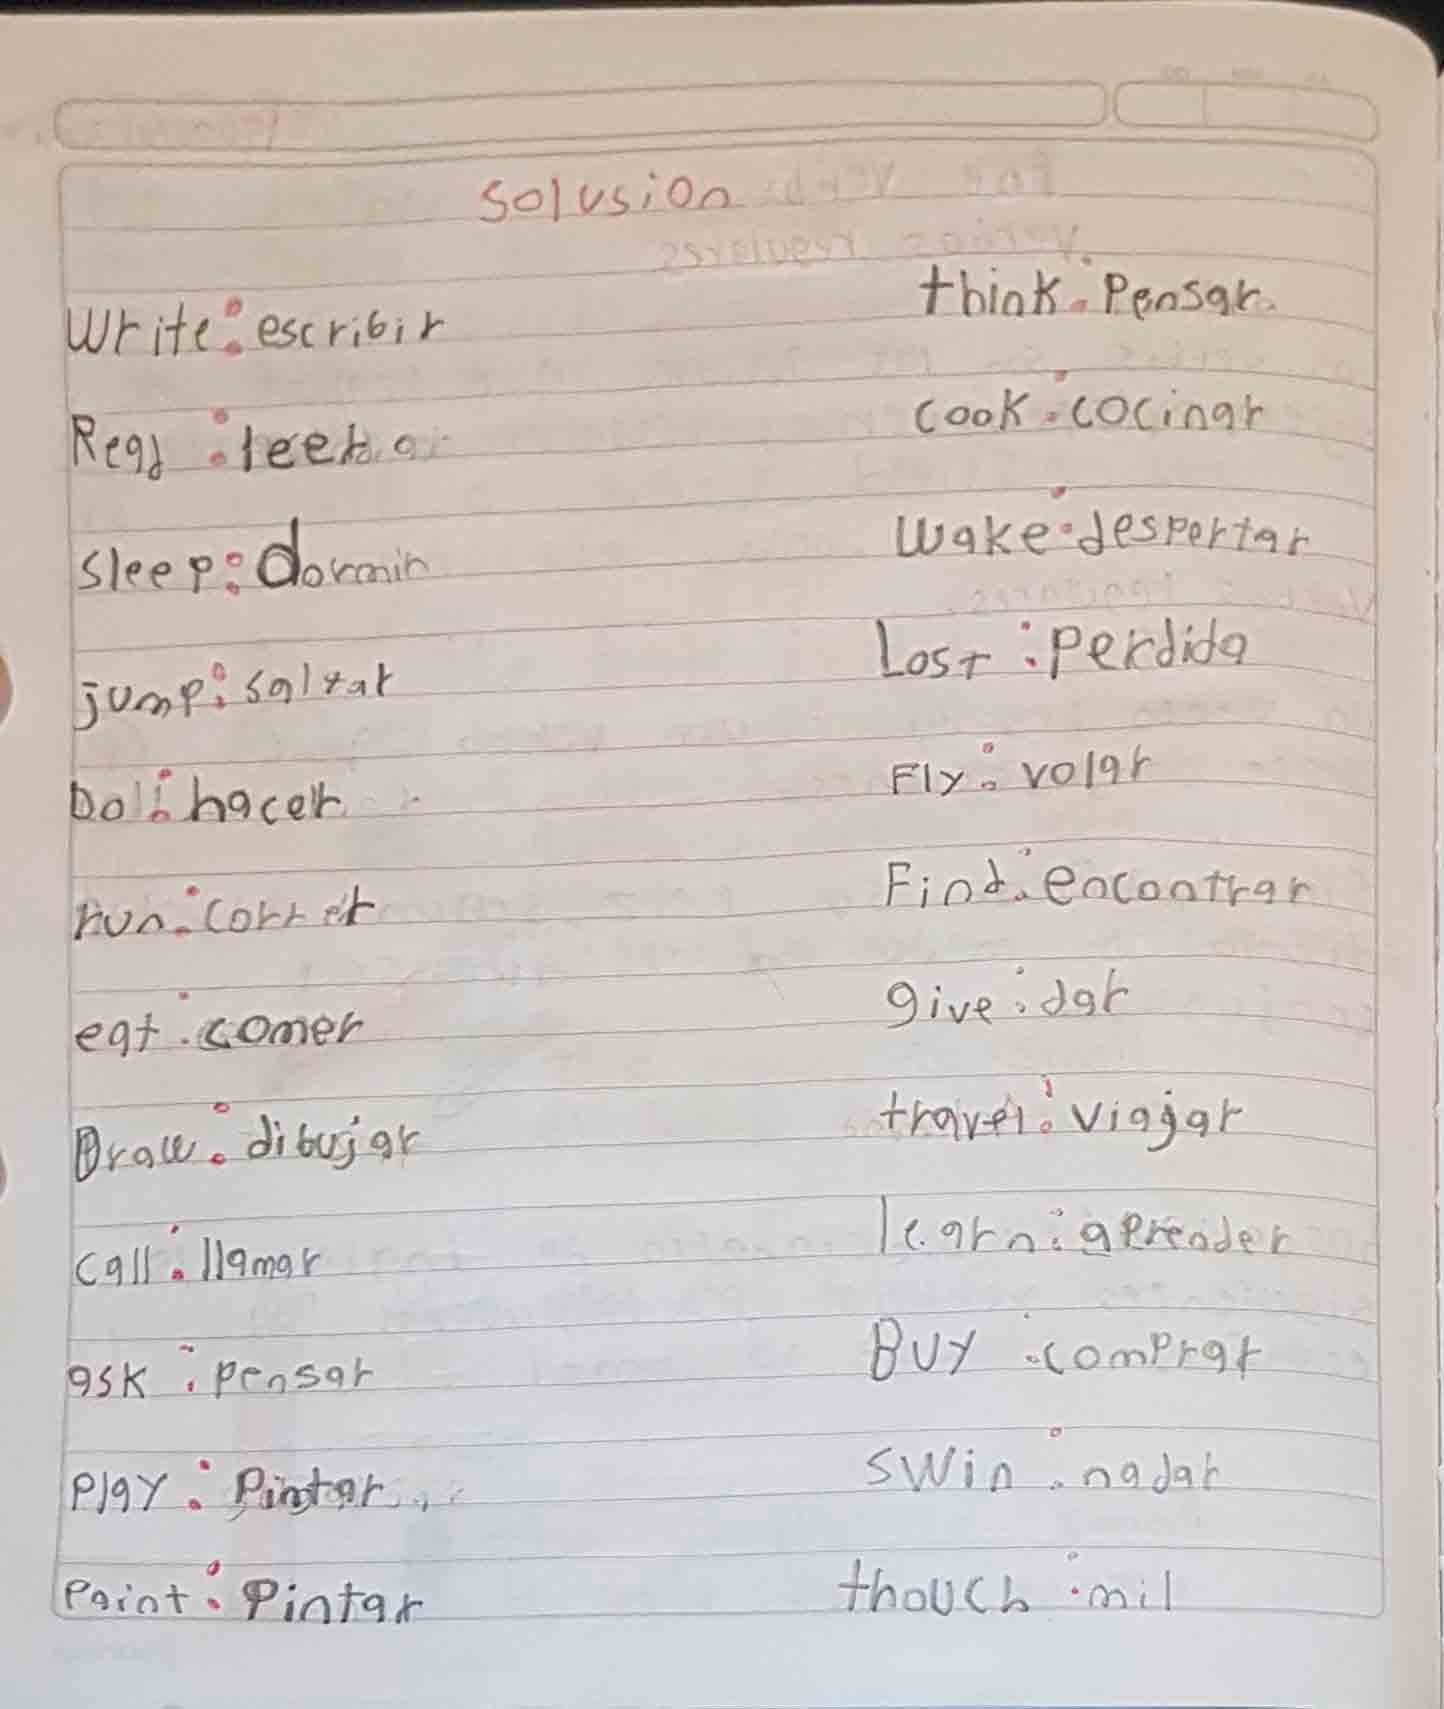 Solusion
Write: escribir
Read: leer
sleep: dormir
jump: saltar
Do: hacer
run: correr
eat: comer
Draw: dibujar
call: llamar
ask: pensar
Play: Pintar
Paint: Pintar
think: Pensar
cook: cocinar
Wake: despertar
Lost: perdida
Fly: volar
Find: encontrar
give: dar
travel: viajar
learn: aprender
Buy: comprar
swin: nadar
thouch: mil